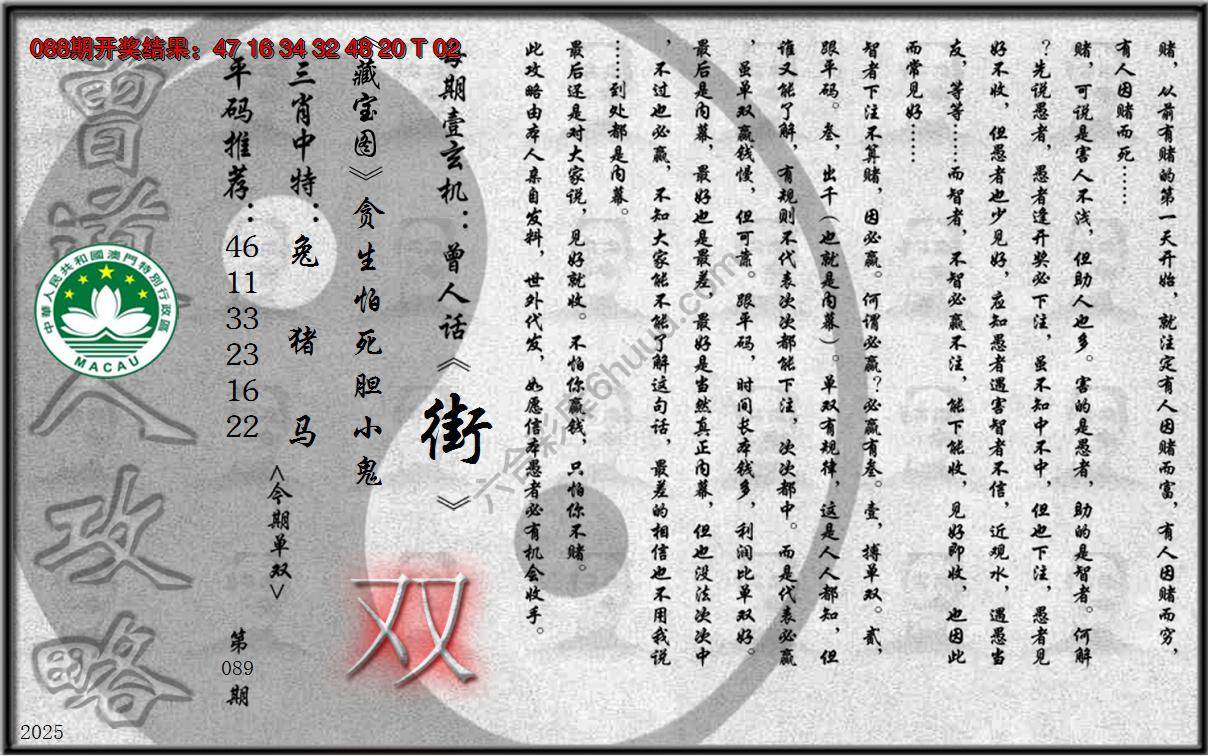 088期开奖结果：47 16 34 32 48 20 T 02
赌，从前有赌的第一天开始，就注定有人因赌而富，有人因赌而穷，
有人因赌而死……
赌，可说是害人不浅，但助人也多。害的是愚者，助的是智者。何解
？先说愚者，愚者逢开奖必下注，虽不知中不中，但也下注，愚者见
好不收，但愚者也少见好，应知愚者遇害智者不信，近观水，遇愚当
友，等等……而智者，不智必赢不注，能下能收，见好即收，也因此
而常见好……
智者下注不算赌，因必赢。何谓必赢？必赢有叁。壹，搏单双。贰，
跟平码。叁，出千（也就是内幕）。单双有规律，这是人人都知，但
谁又能了解，有规则不代表次次都能下注，次次都中。而是代表必赢
，虽单双赢钱慢，但可靠。跟平码，时间长本钱多，利润比单双好。
最后是内幕，最好也是最差，最好是当然真正内幕，但也没法次次中
，不过也必赢，不知大家能不能了解这句话，最差的相信也不用我说
……到处都是内幕。
最后还是对大家说，见好就收。不怕你赢钱，只怕你不赌。
此攻略由本人亲自发料，世外代发，如愿信本愚者必有机会收手。
每期壹玄机：曾人话《街》
《藏宝图》贪生怕死胆小鬼
双
三肖中特：兔 猪 马
<今期单双>
平码推荐：46 11 33 23 16 22
第089期
曾道人攻略
中華人民共和國澳門特別行政區
MACAU
2025